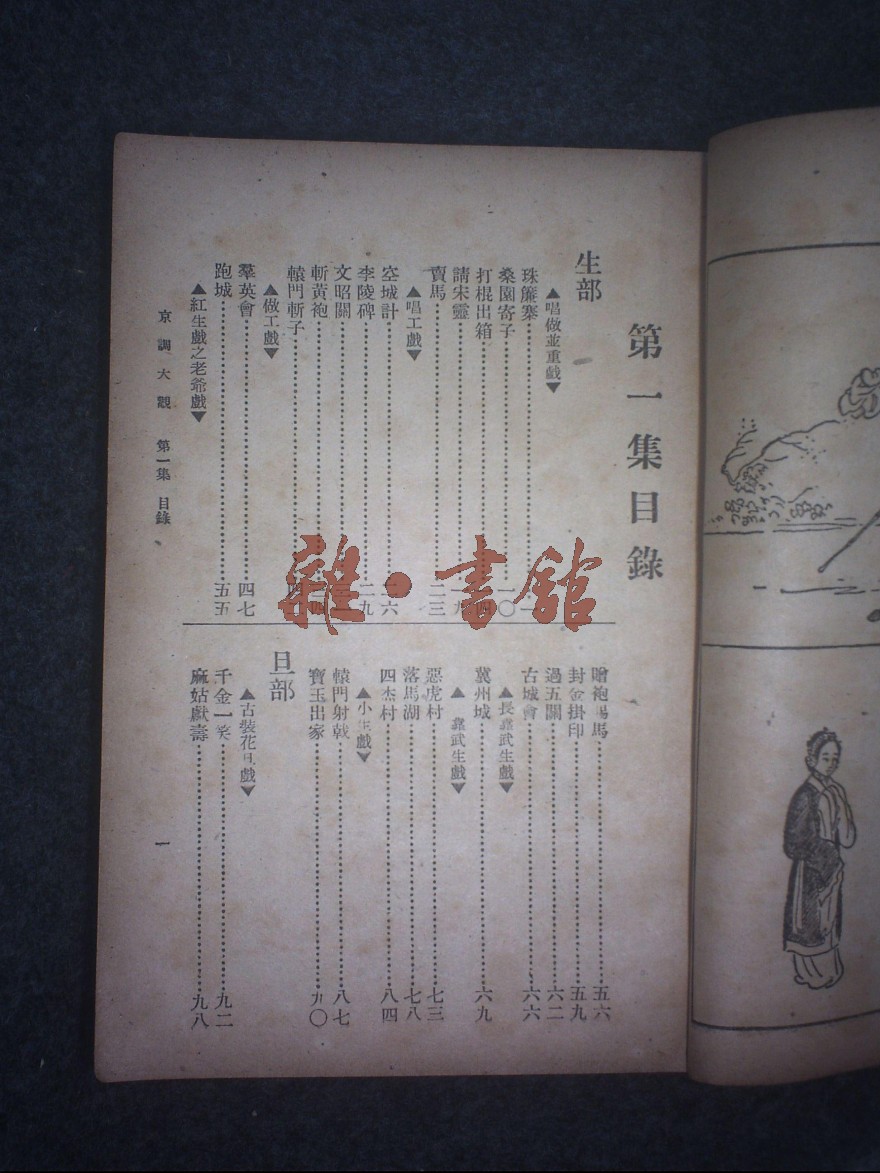 第一集目錄
生部
▲唱做並重戲▼
珠簾寨⋯⋯一
桑園寄子⋯⋯一〇
打棍出箱⋯⋯
請宋靈⋯⋯一九
賣馬⋯⋯二三
▲唱工戲▼
空城計⋯⋯二六
李陵碑⋯⋯二九
文昭關⋯⋯
斬黃袍⋯⋯
轅門斬子⋯⋯
▲做工戲▼
羣英會⋯⋯四七
跑城⋯⋯五五
▲紅生戲之老爺戲▼
贈袍賜馬⋯⋯五六
封金掛印⋯⋯五九
過五關⋯⋯六二
古城會⋯⋯六六
▲長靠武生戲▼
冀州城⋯⋯六九
▲靠武生戲▼
惡虎村⋯⋯七三
落馬湖⋯⋯七八
四杰村⋯⋯八四
▲小生戲▼
轅門射戟⋯⋯八七
寶玉出家⋯⋯九〇
旦部
▲古裝花旦戲▼
千金一笑⋯⋯九二
麻姑獻壽⋯⋯九八
京調大觀 第一集 目錄
一
雜·書館